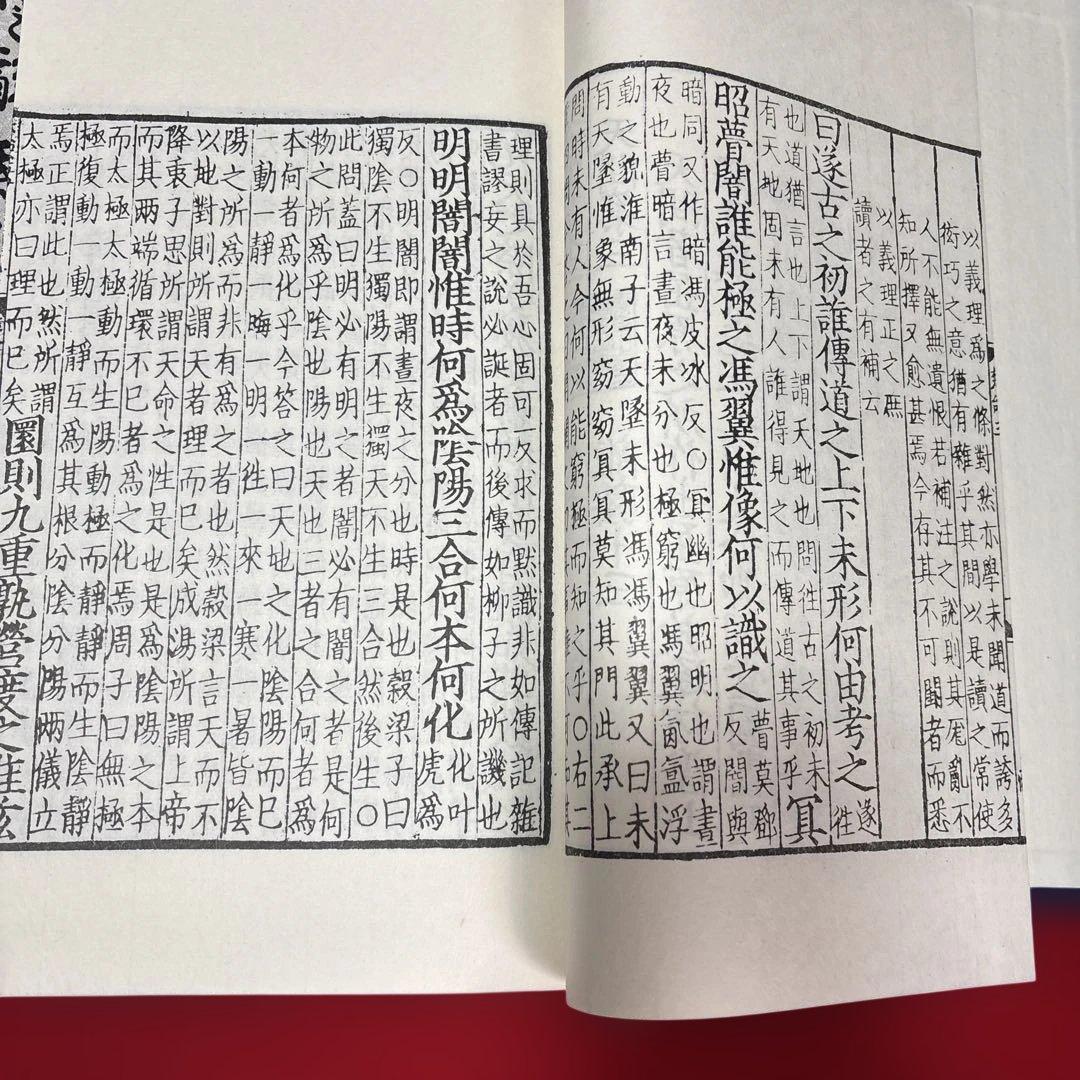 以義理爲之條對然亦學未聞道而誇多
衒巧之意猶有雜乎其間以是讀之常使
人不能無遺恨若補注之說則其厖亂不
知所擇又愈甚焉今存其不可闕者而悉
以義理正之庶
讀者之有補云
曰遂古之初誰傳道之上下未形何由考之遂徃
也道猶言也上下謂天地也問徃古之初未
有天地固未有人誰得見之而傳道其事乎冥
昭瞢闇誰能極之馮翼惟像何以識之瞢莫鄧反闇與
暗同又作暗馮皮冰反〇冥幽也昭明也謂晝
夜也瞢暗言晝夜未分也極窮也馮翼氤氳浮
動之貌淮南子云天墬未形馮馮翼翼又曰未
有天墬惟象無形窈窈冥冥莫知其門此承上
問時未有人今何以能窮極而知之乎〇右二
理則具於吾心固可反求而默識非如傳記雜
書謬妄之說必誕者而後傳如柳子之所譏也
明明闇闇惟時何爲陰陽三合何本何化化叶虎爲
反〇明闇即謂晝夜之分也時是也穀梁子曰
獨陰不生獨陽不生獨天不生三合然後生〇
此問蓋曰明必有明之者闇必有闇之者是何
物之所爲乎陰也陽也天也三者之合何者爲
本何者爲化乎今答之曰天地之化陰陽而已
一動一靜一晦一明一徃一來一寒一暑皆陰
陽之所爲而非有爲之者也然穀梁言天而不
以地對則所謂天者理而已矣成湯所謂上帝
降衷子思所謂天命之性是也是爲陰陽之本
而其兩端循環不已者爲之化焉周子曰無極
而太極太極動而生陽動極而靜靜而生陰靜
極復動一動一靜互爲其根分陰分陽兩儀立
焉正謂此也然所謂
太極亦曰理而已矣圜則九重孰營度之惟兹